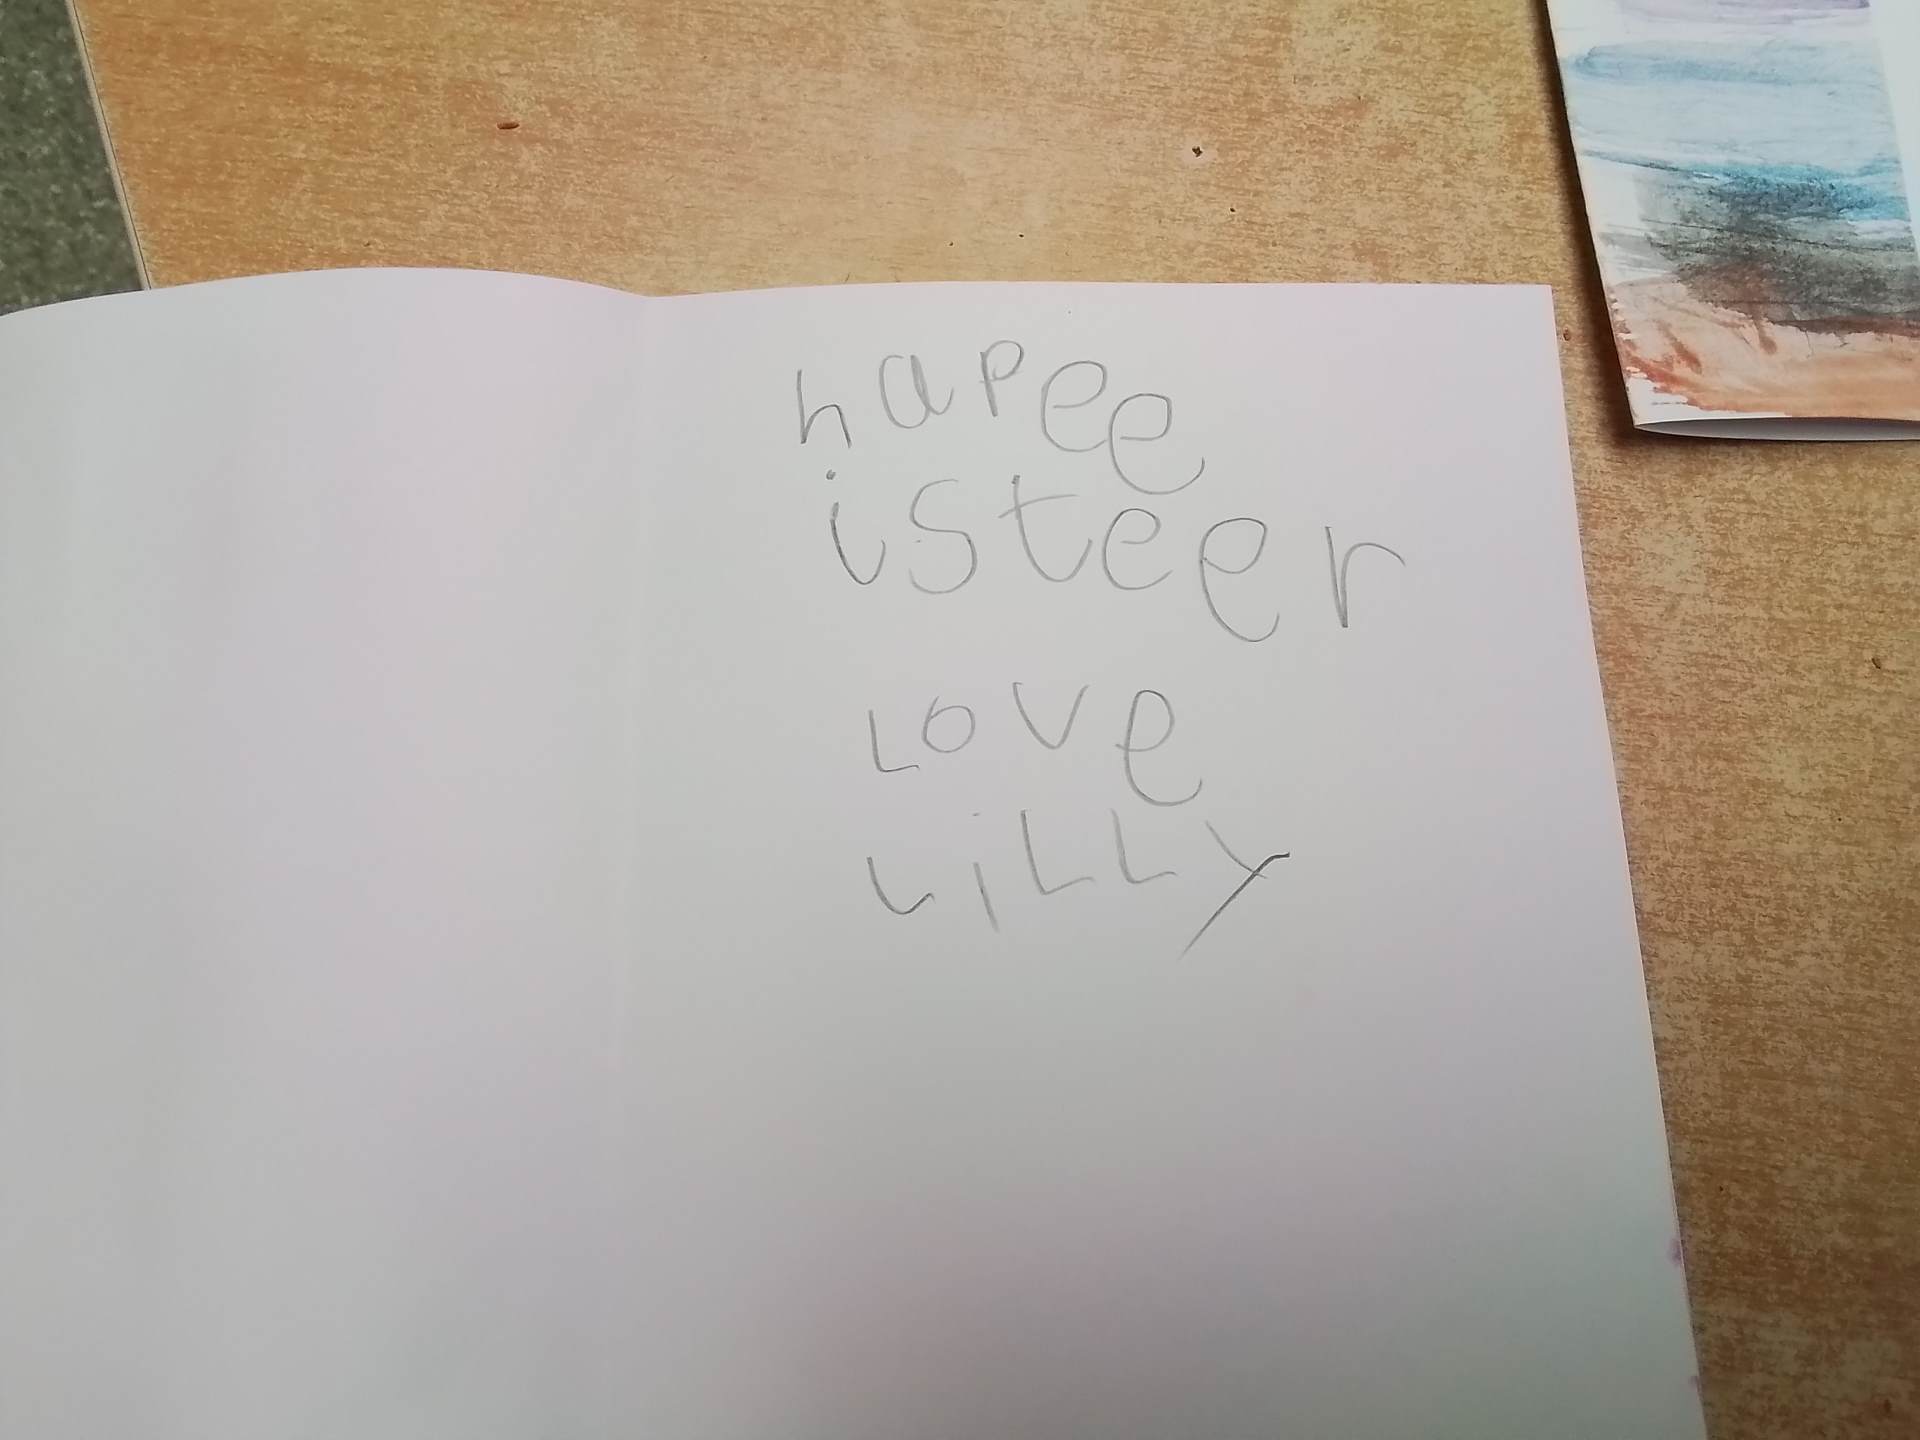 hapee
isteer
Love
Lilly